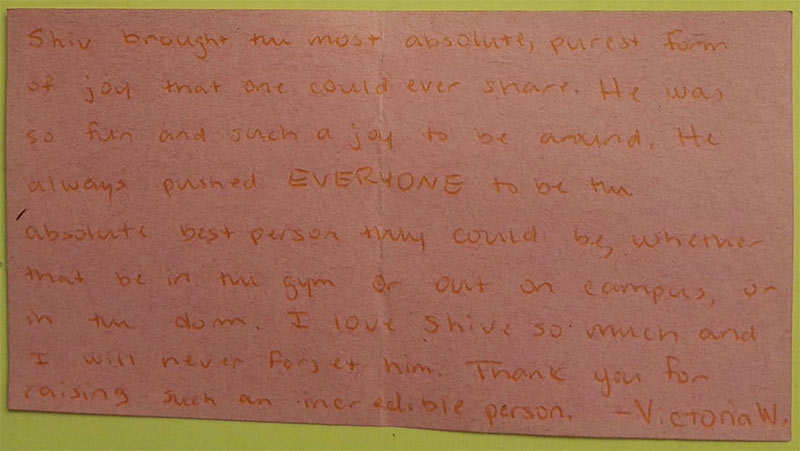 Shiv brought the most absolute, purest form
of joy that one could ever share. He was
so fun and such a joy to be around. He
always pushed EVERYONE to be the
absolute best person they could be, whether
that be in the gym or out on campus, or
in the dorm. I love Shive so much and
I will never forget him. Thank you for
raising such an incredible person. -Victoria W.